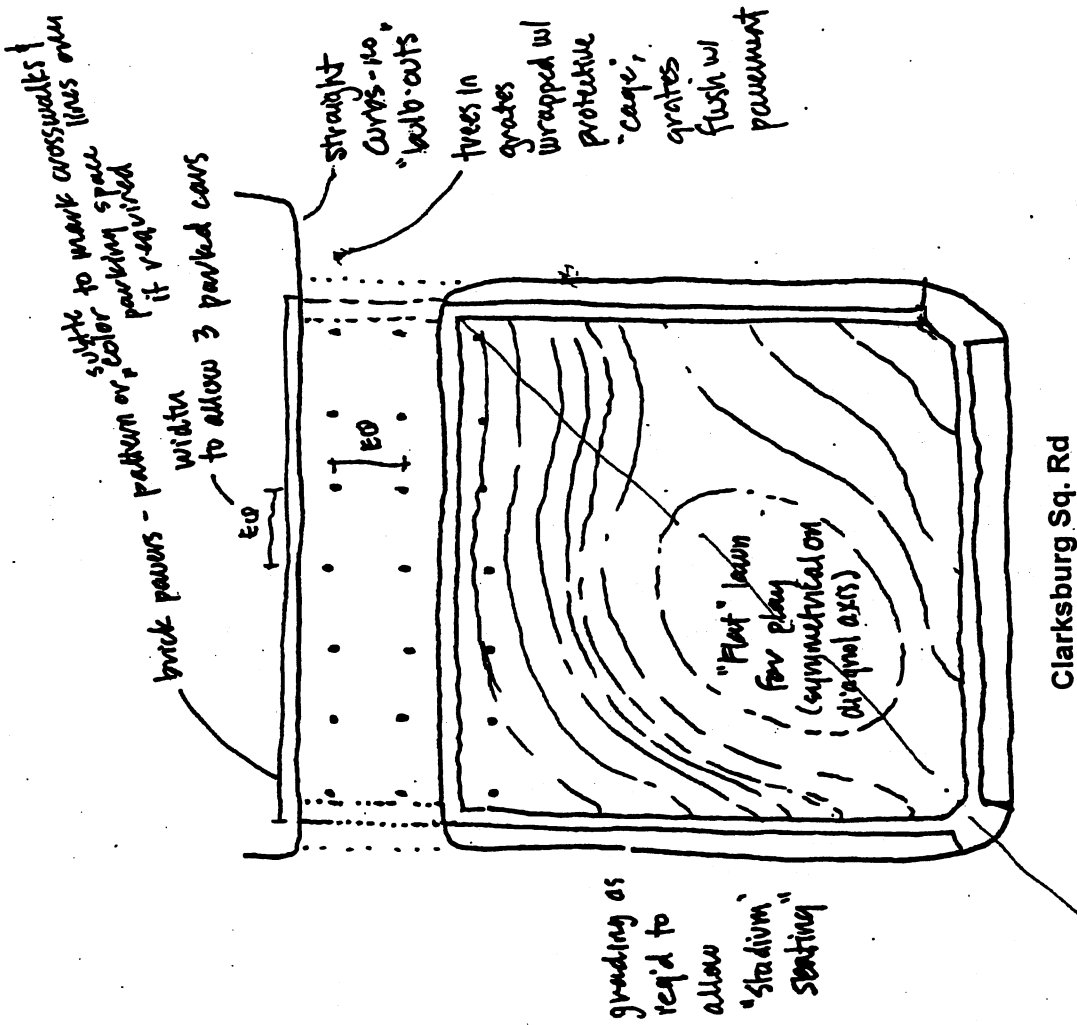 brick pavers - pattern or color
suffice to mark crosswalks &
parking space lines only
if required
width
to allow 3 parked cars
EQ
EQ
straight
curbs - no
"bulb-outs"
trees in
grates
wrapped w/
protective
"cage",
grates
flush w/
pavement
"Flat" lawn
for play
(symmetrical on
diagnol axis)
grading as
req'd to
allow
"stadium"
seating"
Clarksburg Sq. Rd